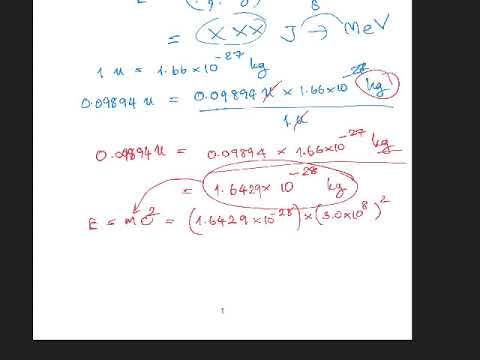 = (XXX) J → MeV
1 u = 1.66×10⁻²⁷ kg
0.09894 u = 0.09894 u × 1.66×10⁻²⁸ kg
1 u
0.09894 u = 0.09894 × 1.66×10⁻²⁷ kg
= 1.6429× 10⁻²⁸ kg
E = mc² = (1.6429×10⁻²⁸)×(3.0×10⁸)²
1